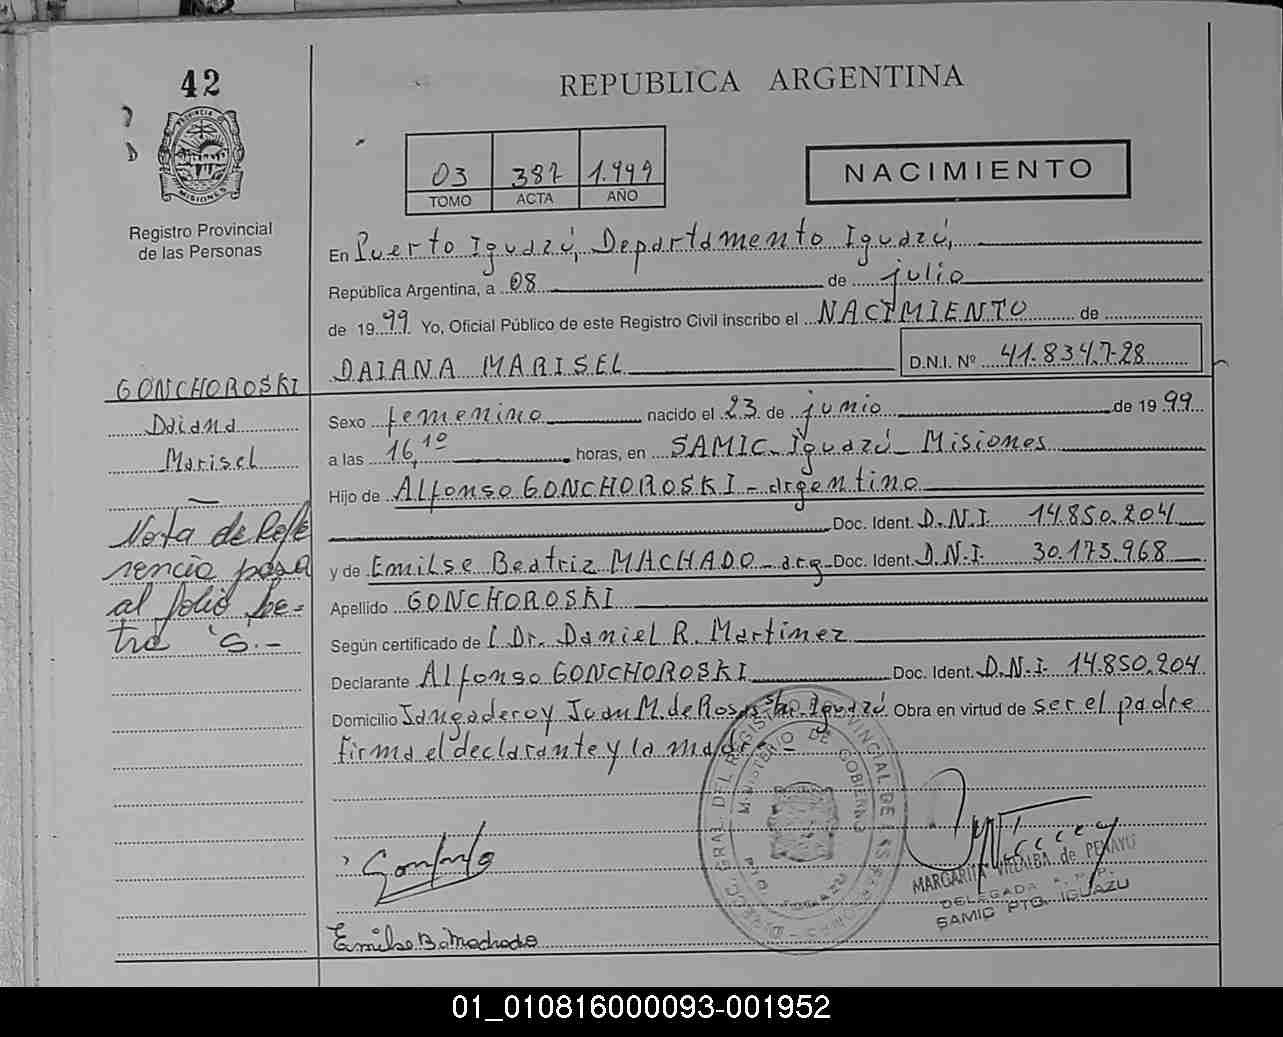 42
REPUBLICA ARGENTINA
PROVINCIA DE MISIONES
Registro Provincial
de las Personas
03 387 1.999
TOMO ACTA AÑO
NACIMIENTO
En Puerto Iguazú, Departamento Iguazú,
República Argentina, a 08 de julio
de 1999 Yo, Oficial Público de este Registro Civil inscribo el NACIMIENTO de
DAIANA MARISEL D.N.I. Nº 41.834.728
GONCHOROSKI
Daiana
Marisel
Sexo femenino nacido el 23 de junio de 1999
a las 16,10 horas, en SAMIC - Iguazú - Misiones
Hijo de Alfonso GONCHOROSKI - argentino
Doc. Ident. D.N.I. 14.850.204
y de Emilse Beatriz MACHADO - arg - Doc. Ident. D.N.I. 30.175.968
Apellido GONCHOROSKI
Según certificado de Dr. Daniel R. Martinez
Declarante Alfonso GONCHOROSKI Doc. Ident. D.N.I. 14.850.204
Domicilio Jangadero y Juan M. de Rosas Iguazú Obra en virtud de ser el padre
firma el declarante y la madre -
Nota de Refe
rencia pasa
al folio le-
tra S.-
Emilse B. Machado
DIRECC. GRAL. DEL REGISTRO PROVINCIAL DE LAS PERSONAS
MINISTERIO DE GOBIERNO
MARGARITA VILLALBA de PENAYO
DELEGADA
SAMIC PTO. IGUAZU
01_010816000093-001952